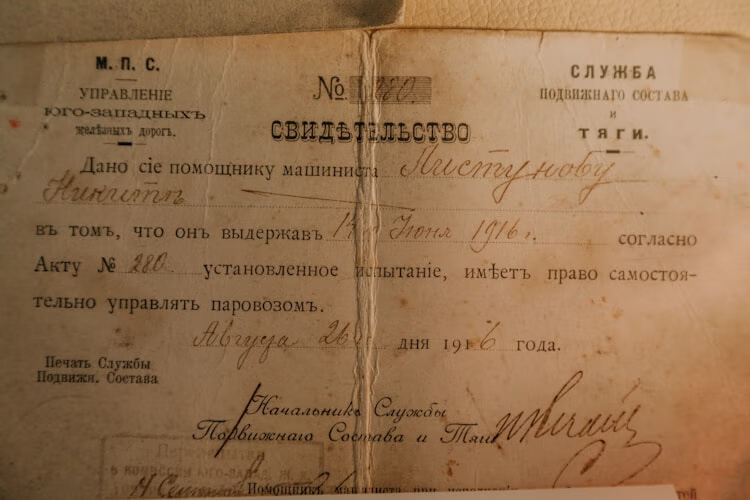 М. П. С.
УПРАВЛЕНІЕ
Юго-Западныхъ
желѣзныхъ дорогъ.
№ 280.
СЛУЖБА
ПОДВИЖНАГО СОСТАВА
и
ТЯГИ.
СВИДѢТЕЛЬСТВО
Дано сіе помощнику машиниста Пистунову
Никитѣ
въ томъ, что онъ выдержав Іюня 1916 г. согласно
Акту № 280 установленное испытаніе, имѣетъ право самостоя-
тельно управлять паровозомъ.
Августа 26 дня 1916 года.
Печать Службы
Подвижн. Состава
Начальникъ Службы
Подвижнаго Состава и Тяги
Помощникъ